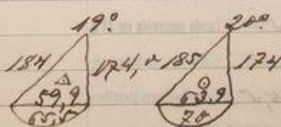 19° 20°
184 174, 185 174
59,9 63.9
65,5 70